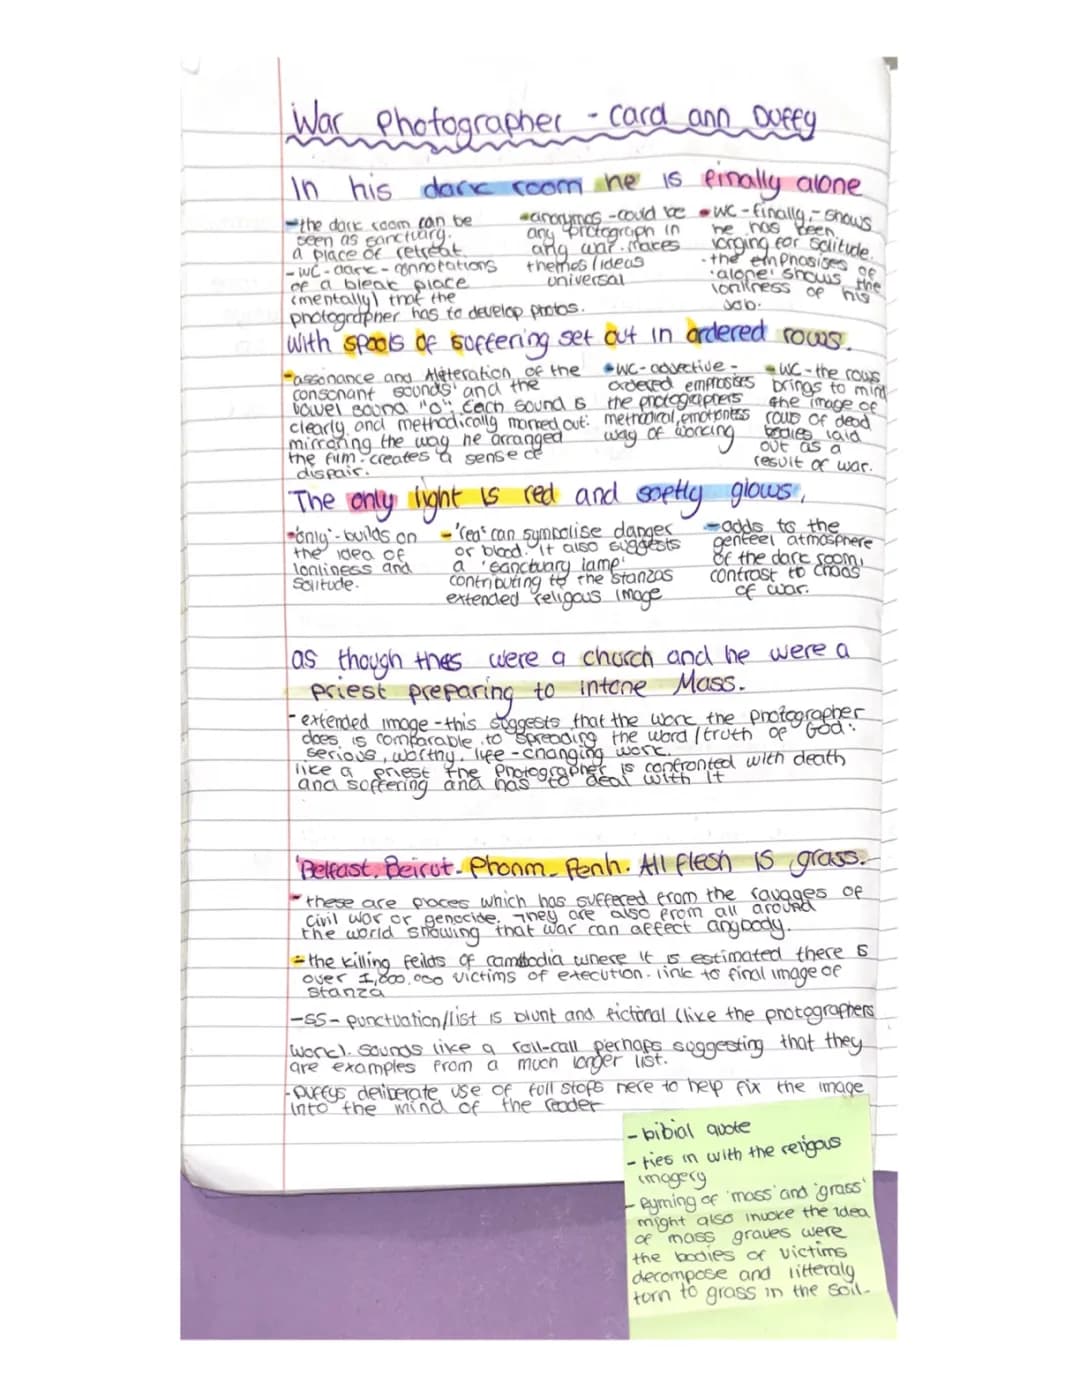 War Photographer - Carol ann Duffy
In his dark room he is finally alone
- the dark room can be
seen as sanctuary.
a place of retreat.
- WC - dark - connotations
of a bleak place
(mentally) that the
photographer has to develop photos.
- anonymos - could be
any photograph in
any war. Makes
themes/ideas
universal
- WC - finally, - shows
he has been
longing for solitude.
- the emphasises of
'alone' shows the
lonliness of his
job.
With spools of suffering set out in ordered rows.
- assonance and Aliteration of the
consonant sounds' and the
vowel sound "o". Each sound is
clearly and methodically marked out:
mirroring the way he arranged
the film. creates a sense of
dispair.
- WC - adjective -
ordered emphasises
the photographers
methodical, emotionless
way of working
- WC - the rows
brings to mind
the image of
rows of dead
bodies laid
out as a
result of war.
The only light is red and softly glows,
- 'only' - builds on
the idea of
lonliness and
Solitude.
- 'red' can symbolise danger
or blood. It also suggests
a 'sanctuary lamp'
contributing to the stanzas
extended religous image
- adds to the
genteel atmosphere
of the dark room,
contrast to chaos
of war.
as though thes were a church and he were a
Priest preparing to intone Mass.
- extended image - this suggests that the work the photographer
does is comparable to spreading the word/truth of God:
serious, worthy, life-changing work.
like a priest the Photographer is confronted with death
and soffering and has to deal with it
'Belfast. Beirut. Phonm. Penh. All flesh is grass.
- these are places which has suffered from the ravages of
civil war or genocide. They are also from all around
the world showing that war can affect anybody.
- the killing feilds of cambodia where it is estimated there is
over 1,000,000 victims of execution. link to final image of
stanza
- SS - punctuation/list is blunt and fictional (like the photographers
work). Sounds like a roll-call perhaps suggesting that they
are examples from a much longer list.
- Duffys deliberate use of full stops here to help fix the image
into the mind of the reader
- bibial quote
- ties in with the religous
imagery
- Ryming of 'mass' and 'grass'
might also invoke the idea
of mass graves were
the bodies of victims
decompose and litteraly
torn to grass in the soil.